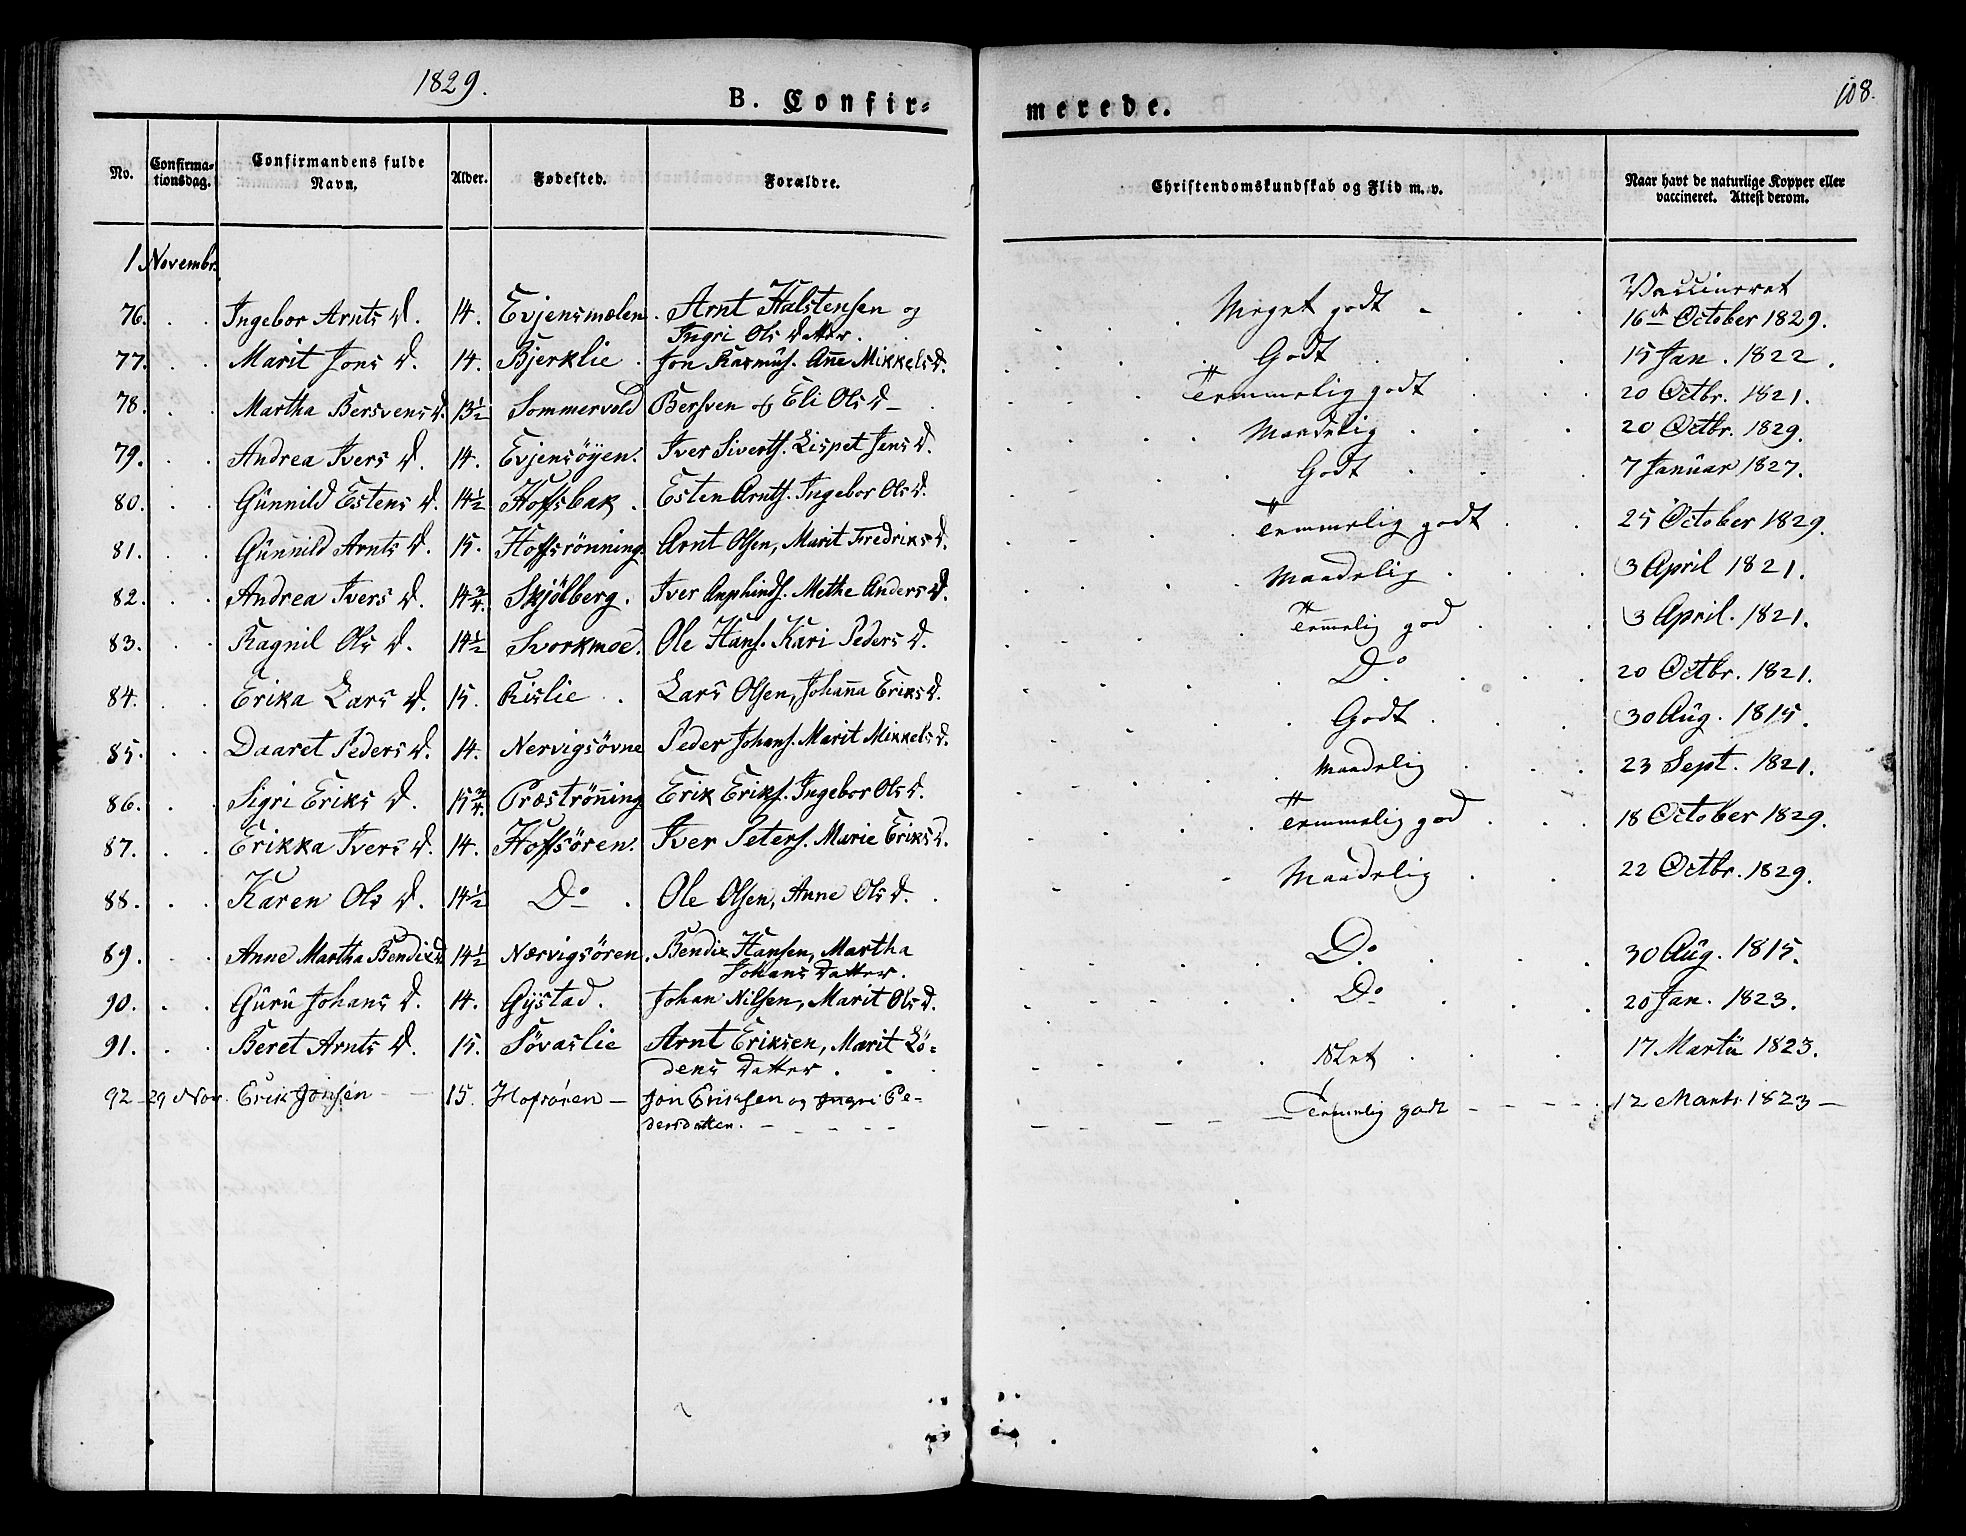 1829.
B. Confir-
merede.
108.
No.
Confirma-
tionsdag.
Confirmandens fulde
Navn.
Alder.
Fødested.
Forældre.
Christendomskundskab og Flid m. v.
Naar havt de naturlige Kopper eller
vaccineret. Attest derom.
1 Novembr.
Vaccineret
76. Ingebor Arnts D. 14. Evjensmælen. Arnt Halstensen og Meget godt 16de October 1829.
Ingri Ols Datter.
77. Marit Jons D. 14. Bjerklie. Jon Rasmus. Ane Mikkelsd. Godt 15 Jan. 1822.
78. Martha Bersvens D. 13½ Sommervold Bersven og Eli Ols D Temmelig godt 20 Octbr. 1821.
79. Andrea Ivers D. 14. Evjensöyen. Iver Siverts. Lispet Jens D. Maadelig 20 Octbr. 1829.
80. Günnild Estens D. 14½ Hoffsbak. Esten Arnts. Ingebor Ols D. Godt 7 Januar 1827.
81. Günnild Arnts D. 15. Hoffsrönning. Arnt Olsen, Marit Fredriks D. Temmelig godt 25 October 1829.
82. Andrea Ivers D. 14¾. Skjölberg. Iver Anphinds. Methe Anders D. Maadelig 3 April 1821.
83. Ragnil Ols D. 14½ Svorkmoe. Ole Hans. Kari Peders D. Temelig god 3 April. 1821.
84. Erika Lars D. 15. Rislie. Lars Olsen, Johana Eriks D. Do 20 Octbr. 1821.
85. Daaret Peders D. 14. Nervigsövne Peder Johans. Marit Mikkels D. Godt 30 Aug. 1815.
86. Sigri Eriks D. 15¾. Præströning Erik Eriks. Ingebor Ols D. Maadelig 23 Sept. 1821.
87. Erikka Ivers D. 14. Hoffsören. Iver Peters. Marie Eriks D. Temmelig god 18 October 1829.
88. Karen Ols D. 14½ Do. Ole Olsen, Anne Ols D. Maadelig 22 Octbr. 1829.
89. Anne Martha Bendix D 14½ Nærvigsören. Bendix Hansen, Martha Do 30 Aug. 1815.
Johans Datter.
90. Gürü Johans D. 14. Gystad. Johan Nilsen, Marit Ols D. Do 20 Jan. 1823.
91. Beret Arnts D. 15. Sövaslie Arnt Eriksen, Marit Lö- Slet 17 Martii 1823.
dens Datter.
92 29 Nov. Erik Jonsen 15. Hofsören Jon Eriksen og Ingri Pe- Temmelig godt 12 Marts 1823
dersdatter.